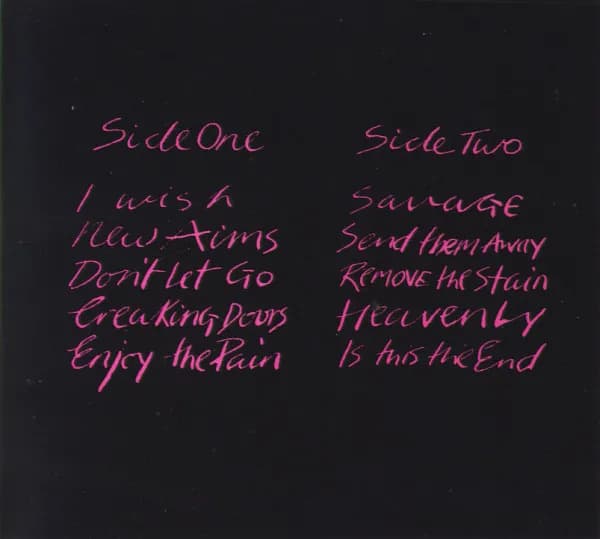 Side One
I wish
New Aims
Don't let Go
Creaking Doors
Enjoy the Pain
Side Two
SavaGE
Send them Away
REMOVE the Stain
Heavenly
Is this the End